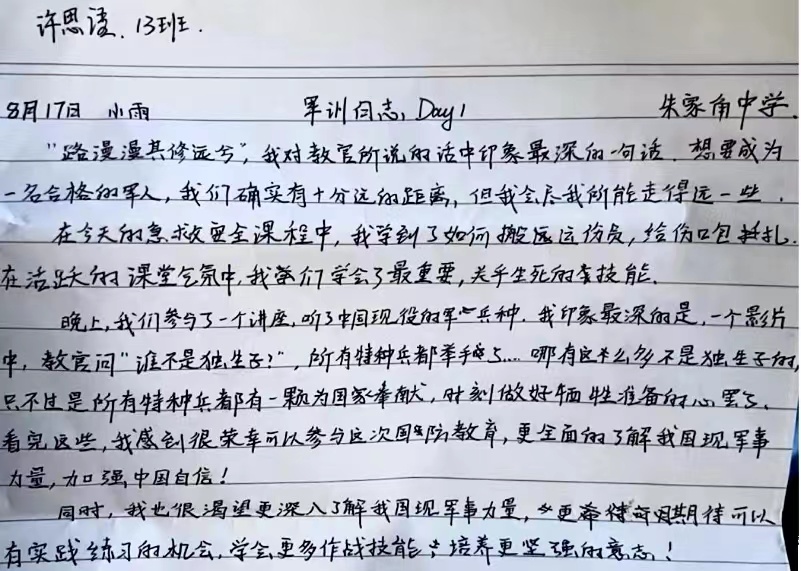 许思凌、13班.
8月17日 小雨 军训日志, Day1 朱家角中学.
"路漫漫其修远兮", 我对教官所说的话中印象最深的一句话. 想要成为
一名合格的军人, 我们确实有十分远的距离, 但我会尽我所能走得远一些.
在今天的急救安全课程中, 我学到了如何搬运伤员, 给伤口包扎.
在活跃的课堂气氛中, 我们学会了最重要, 关乎生死的技能.
晚上, 我们参与了一个讲座, 听了中国现役的军兵种. 我印象最深的是, 一个影片
中, 教官问"谁不是独生子?", 所有特种兵都举手了.... 哪有这么多不是独生子的,
只不过是所有特种兵都有一颗为国家奉献, 时刻做好牺牲准备的心罢了.
看完这些, 我感到很荣幸可以参与这次国防教育, 更全面的了解我国现军事
力量, 加强中国自信!
同时, 我也很渴望更深入了解我国现军事力量, 更期待可以
有实践练习的机会, 学会更多作战技能, 培养更坚强的意志!